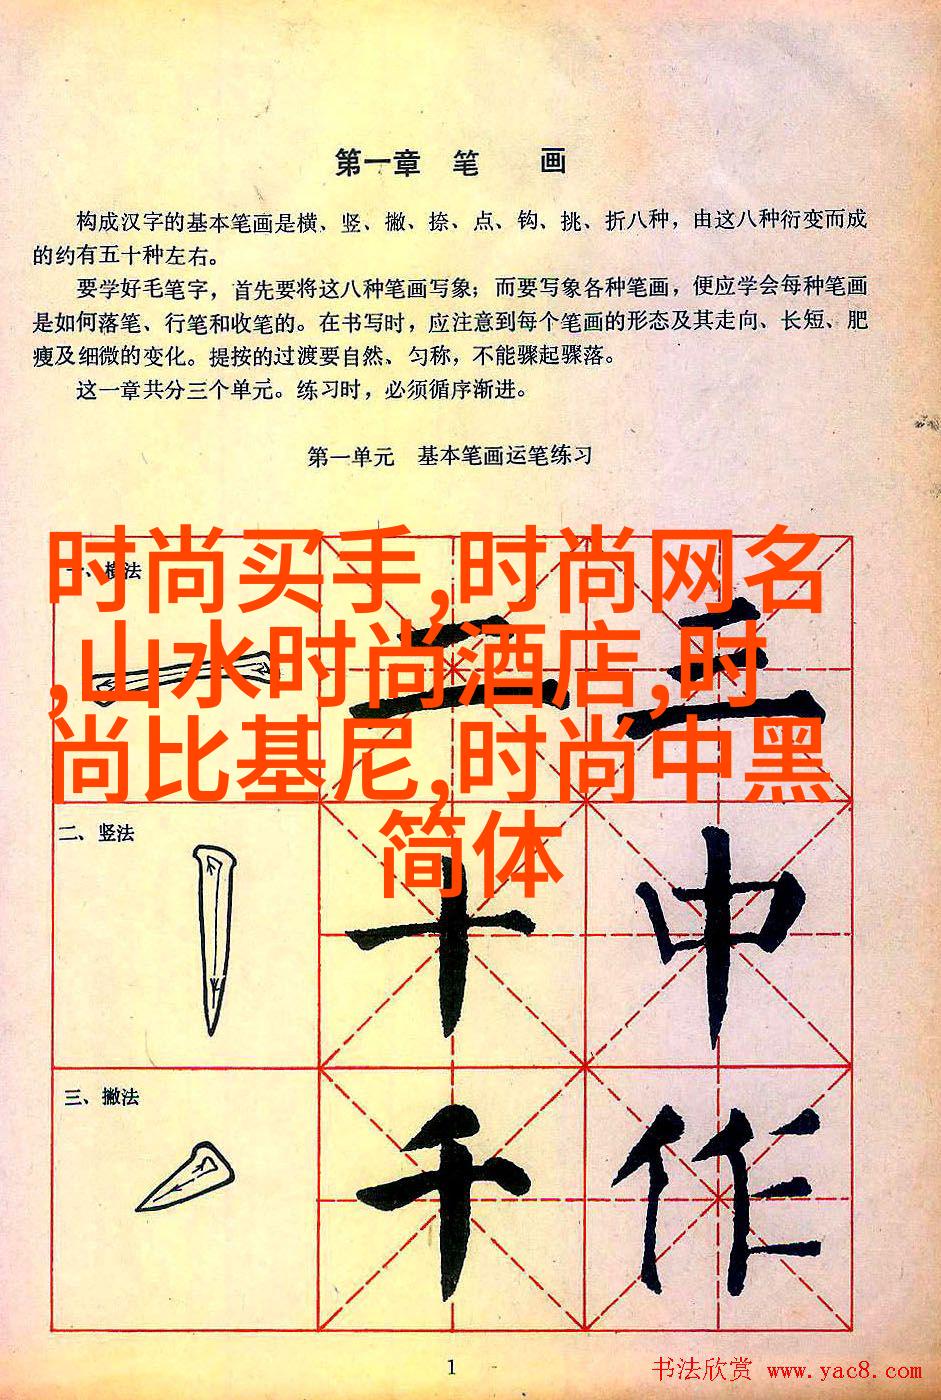 第一章 笔 画
构成汉字的基本笔画是横、竖、撇、捺、点、钩、挑、折八种，由这八种衍变而成
的约有五十种左右。
要学好毛笔字，首先要将这八种笔画写象；而要写象各种笔画，便应学会每种笔画
是如何落笔、行笔和收笔的。在书写时，应注意到每个笔画的形态及其走向、长短、肥
瘦及细微的变化。提按的过渡要自然、匀称，不能骤起骤落。
这一章共分三个单元。练习时，必须循序渐进。
第一单元 基本笔画运笔练习
一、横法
二 三
时尚买手,时尚网名
,山水时尚酒店,时
尚比基尼,时尚中黑
简体
二、竖法
十 中
三、撇法
千 作
1
书法欣赏 www.yac8.com